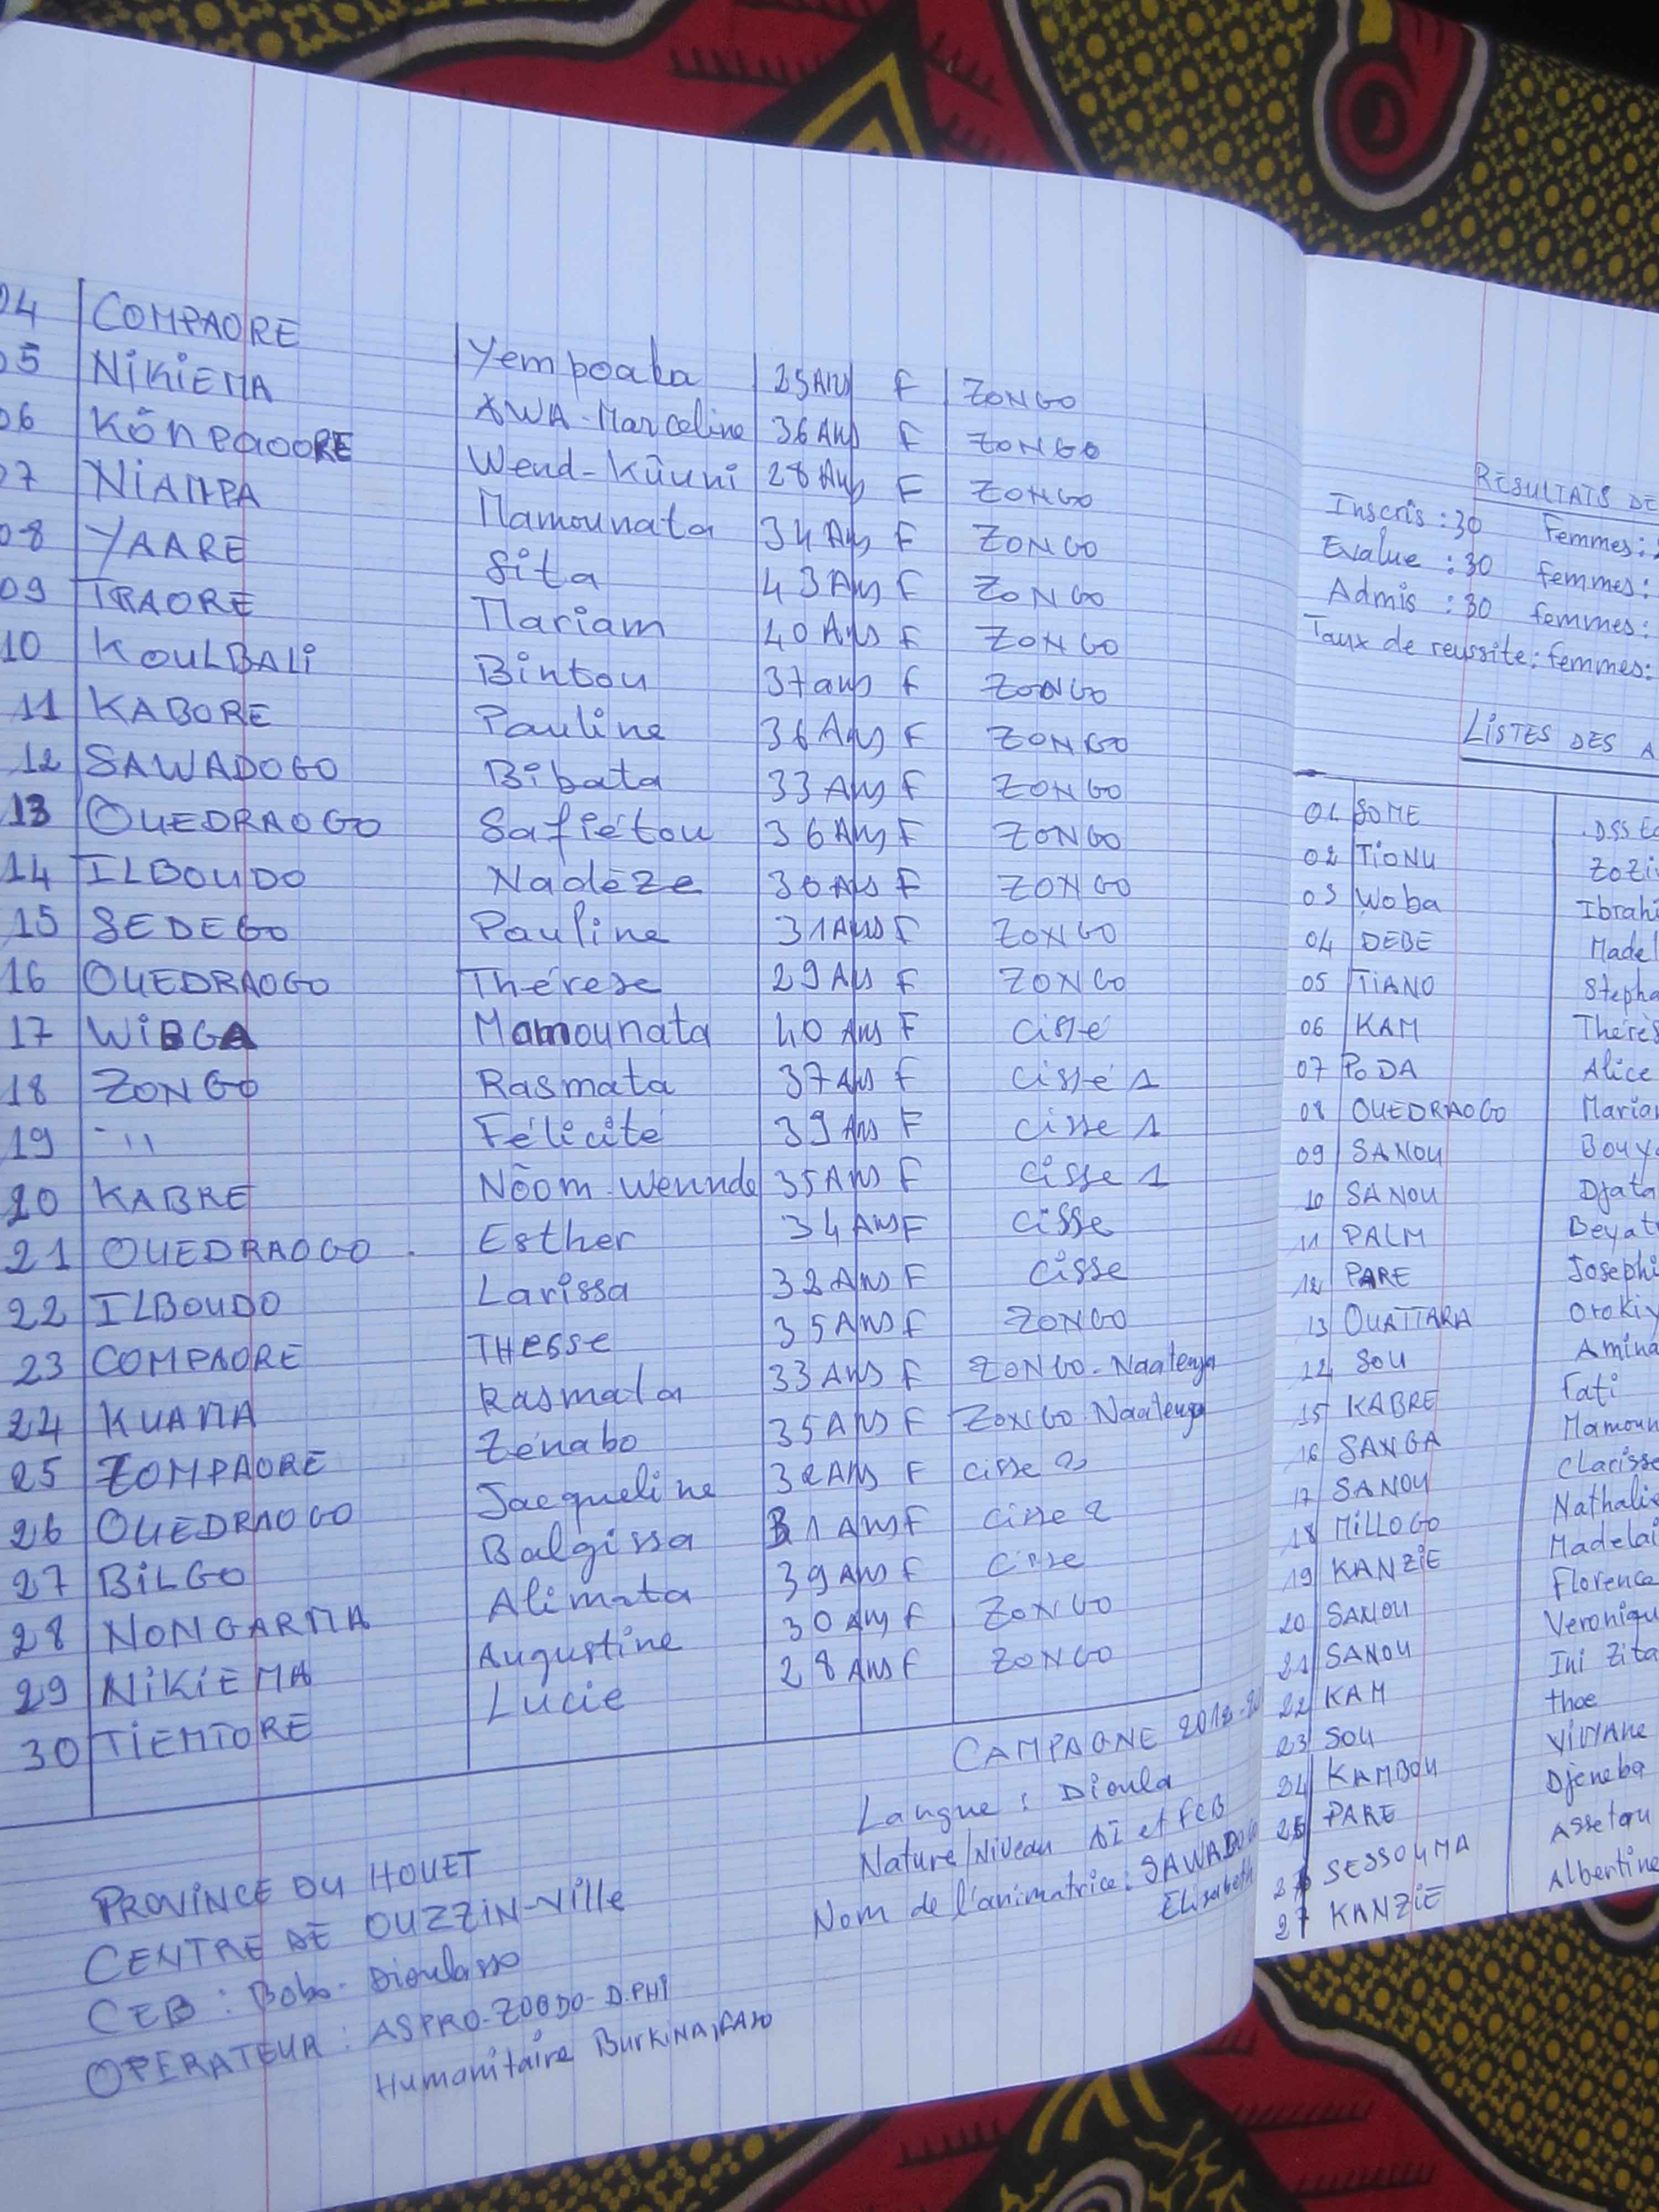 04 COMPAORE Yempoaka 25Ans F ZONGO
05 NiKiEMA AWA-Marceline 36 Ans F ZONGO
06 Kõnpaoore Wend-Kũuni 28 Ans F ZONGO
07 NiAMPA Mamounata 34 Ans F ZONGO
08 YAARE Sita 43 Ans F ZONGO
09 TRAORE Mariam 40 Ans F ZONGO
10 KOULBALi Bintou 37 ans F ZONGO
11 KABORE Pauline 36 Ans F ZONGO
12 SAWADOGO Bibata 33 Ans F ZONGO
13 OUEDRAOGO Safiétou 36 Ans F ZONGO
14 ILBOUDO Nadèze 30 Ans F ZONGO
15 SEDEGO Pauline 31 Ans F ZONGO
16 OUEDRAOGO Thérèse 29 Ans F ZONGO
17 WiBGA Mamounata 40 Ans F cissé
18 ZONGO Rasmata 37 Ans F cissé 1
19 -11 Félicité 39 Ans F cisse 1
20 KABRE Nõom-wennde 35 Ans F cisse 1
21 OUEDRAOGO Esther 34 Ans F cisse
22 ILBOUDO Larissa 32 Ans F cisse
23 COMPAORE THESSE 35 Ans F ZONGO
24 KUAMA Rasmata 33 Ans F ZONGO-Naatenga
25 ZOMPAORE Zénabo 35 Ans F ZONGO-Naatenga
26 OUEDRAOGO Jacqueline 32 Ans F cisse 2
27 BiLGO Balgissa 31 Ans F cisse 2
28 NONGARMA Alimata 39 Ans F cisse
29 NiKiEMA Augustine 30 Ans F ZONGO
30 TiEMTORE Lucie 28 Ans F ZONGO
PROViNCE DU HOUET
CENTRE DE OUZZiN-Ville
CEB : Bobo-Dioulasso
OPERATEUR : ASPRO-ZOODO-D.PHI
Humanitaire BURKINA FASO
CAMPAGNE
Langue : Dioula
Nature/Niveau AI et FCB
Nom de l'animatrice: SAWADOGO
Elisabeth
RESULTATS DE
Inscris : 30 Femmes:
Evalue : 30 femmes:
Admis : 30 femmes:
Taux de reussite: femmes:
LiSTES DES A
01 SOME DSS
02 TiONU Zozi
03 Woba Ibrahi
04 DEBE Madel
05 TiANO Stepha
06 KAM Thérès
07 PODA Alice
08 OUEDRAOGO Marian
09 SANOU Bouy
10 SANOU Djata
11 PALM Beyat
12 PARE Josephi
13 OUATTARA Orokiy
14 SOU Amina
15 KABRE Fati
16 SANGA Mamoun
17 SANOU Clarisse
18 MiLLOGO Nathalie
19 KANZiE Madelai
20 SANOU Florence
21 SANOU Veroniqu
22 KAM Ini Zita
23 SOU thoe
24 KAMBOU ViVYANe
25 PARE Djeneba
26 SESSOUMA Assetou
27 KANZiE Albertine